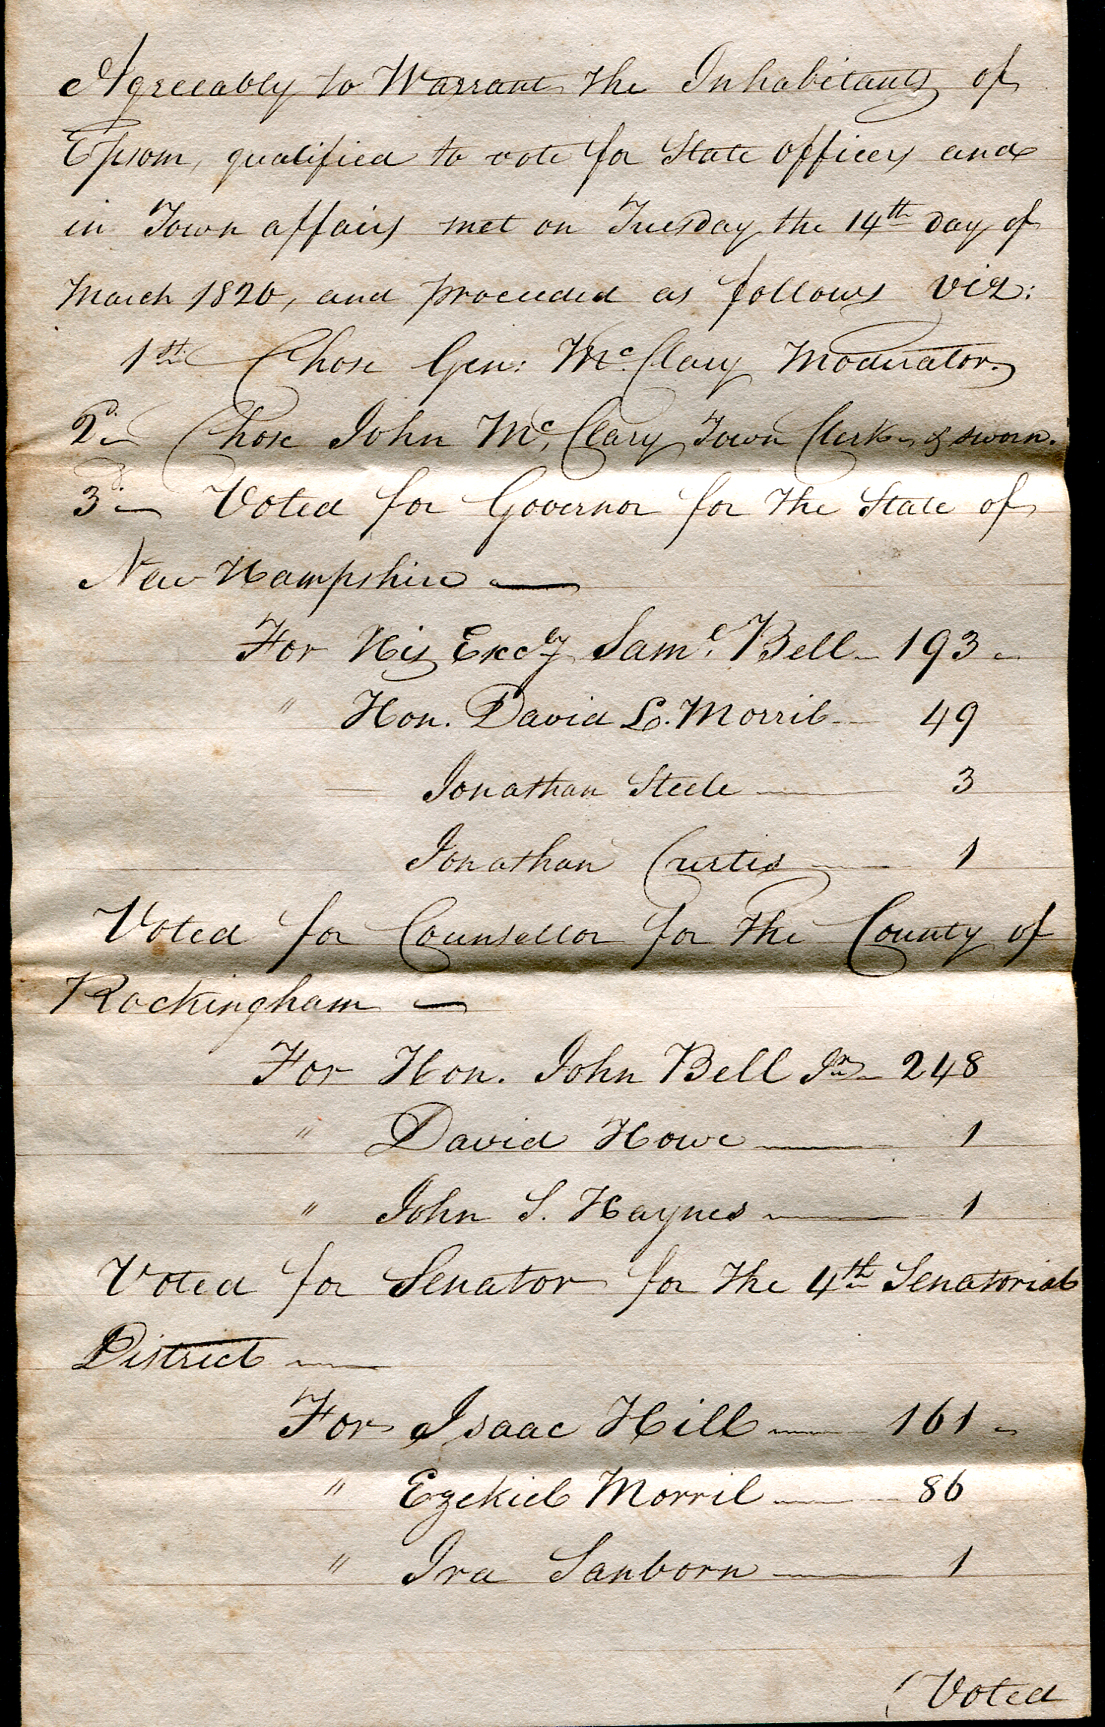 Agreeably to Warrant the Inhabitants of
Epsom, qualified to vote for State officers and
in Town affairs met on Tuesday the 14th day of
March 1820, and proceeded as follows viz:
1st Chose Gen: McClary Moderator.
2d Chose John McClary Town Clerk & sworn.
3d Voted for Governor for the State of
New Hampshire —
For His Excy Saml Bell 193
" Hon. David L. Morril 49
Jonathan Steele 3
Jonathan Curtis 1
Voted for Counsellor for the County of
Rockingham —
For Hon. John Bell Jr 248
" David Howe 1
" John S. Haynes 1
Voted for Senator for the 4th Senatorial
District —
For Isaac Hill 161
" Ezekiel Morril 86
" Ira Sanborn 1
(Voted